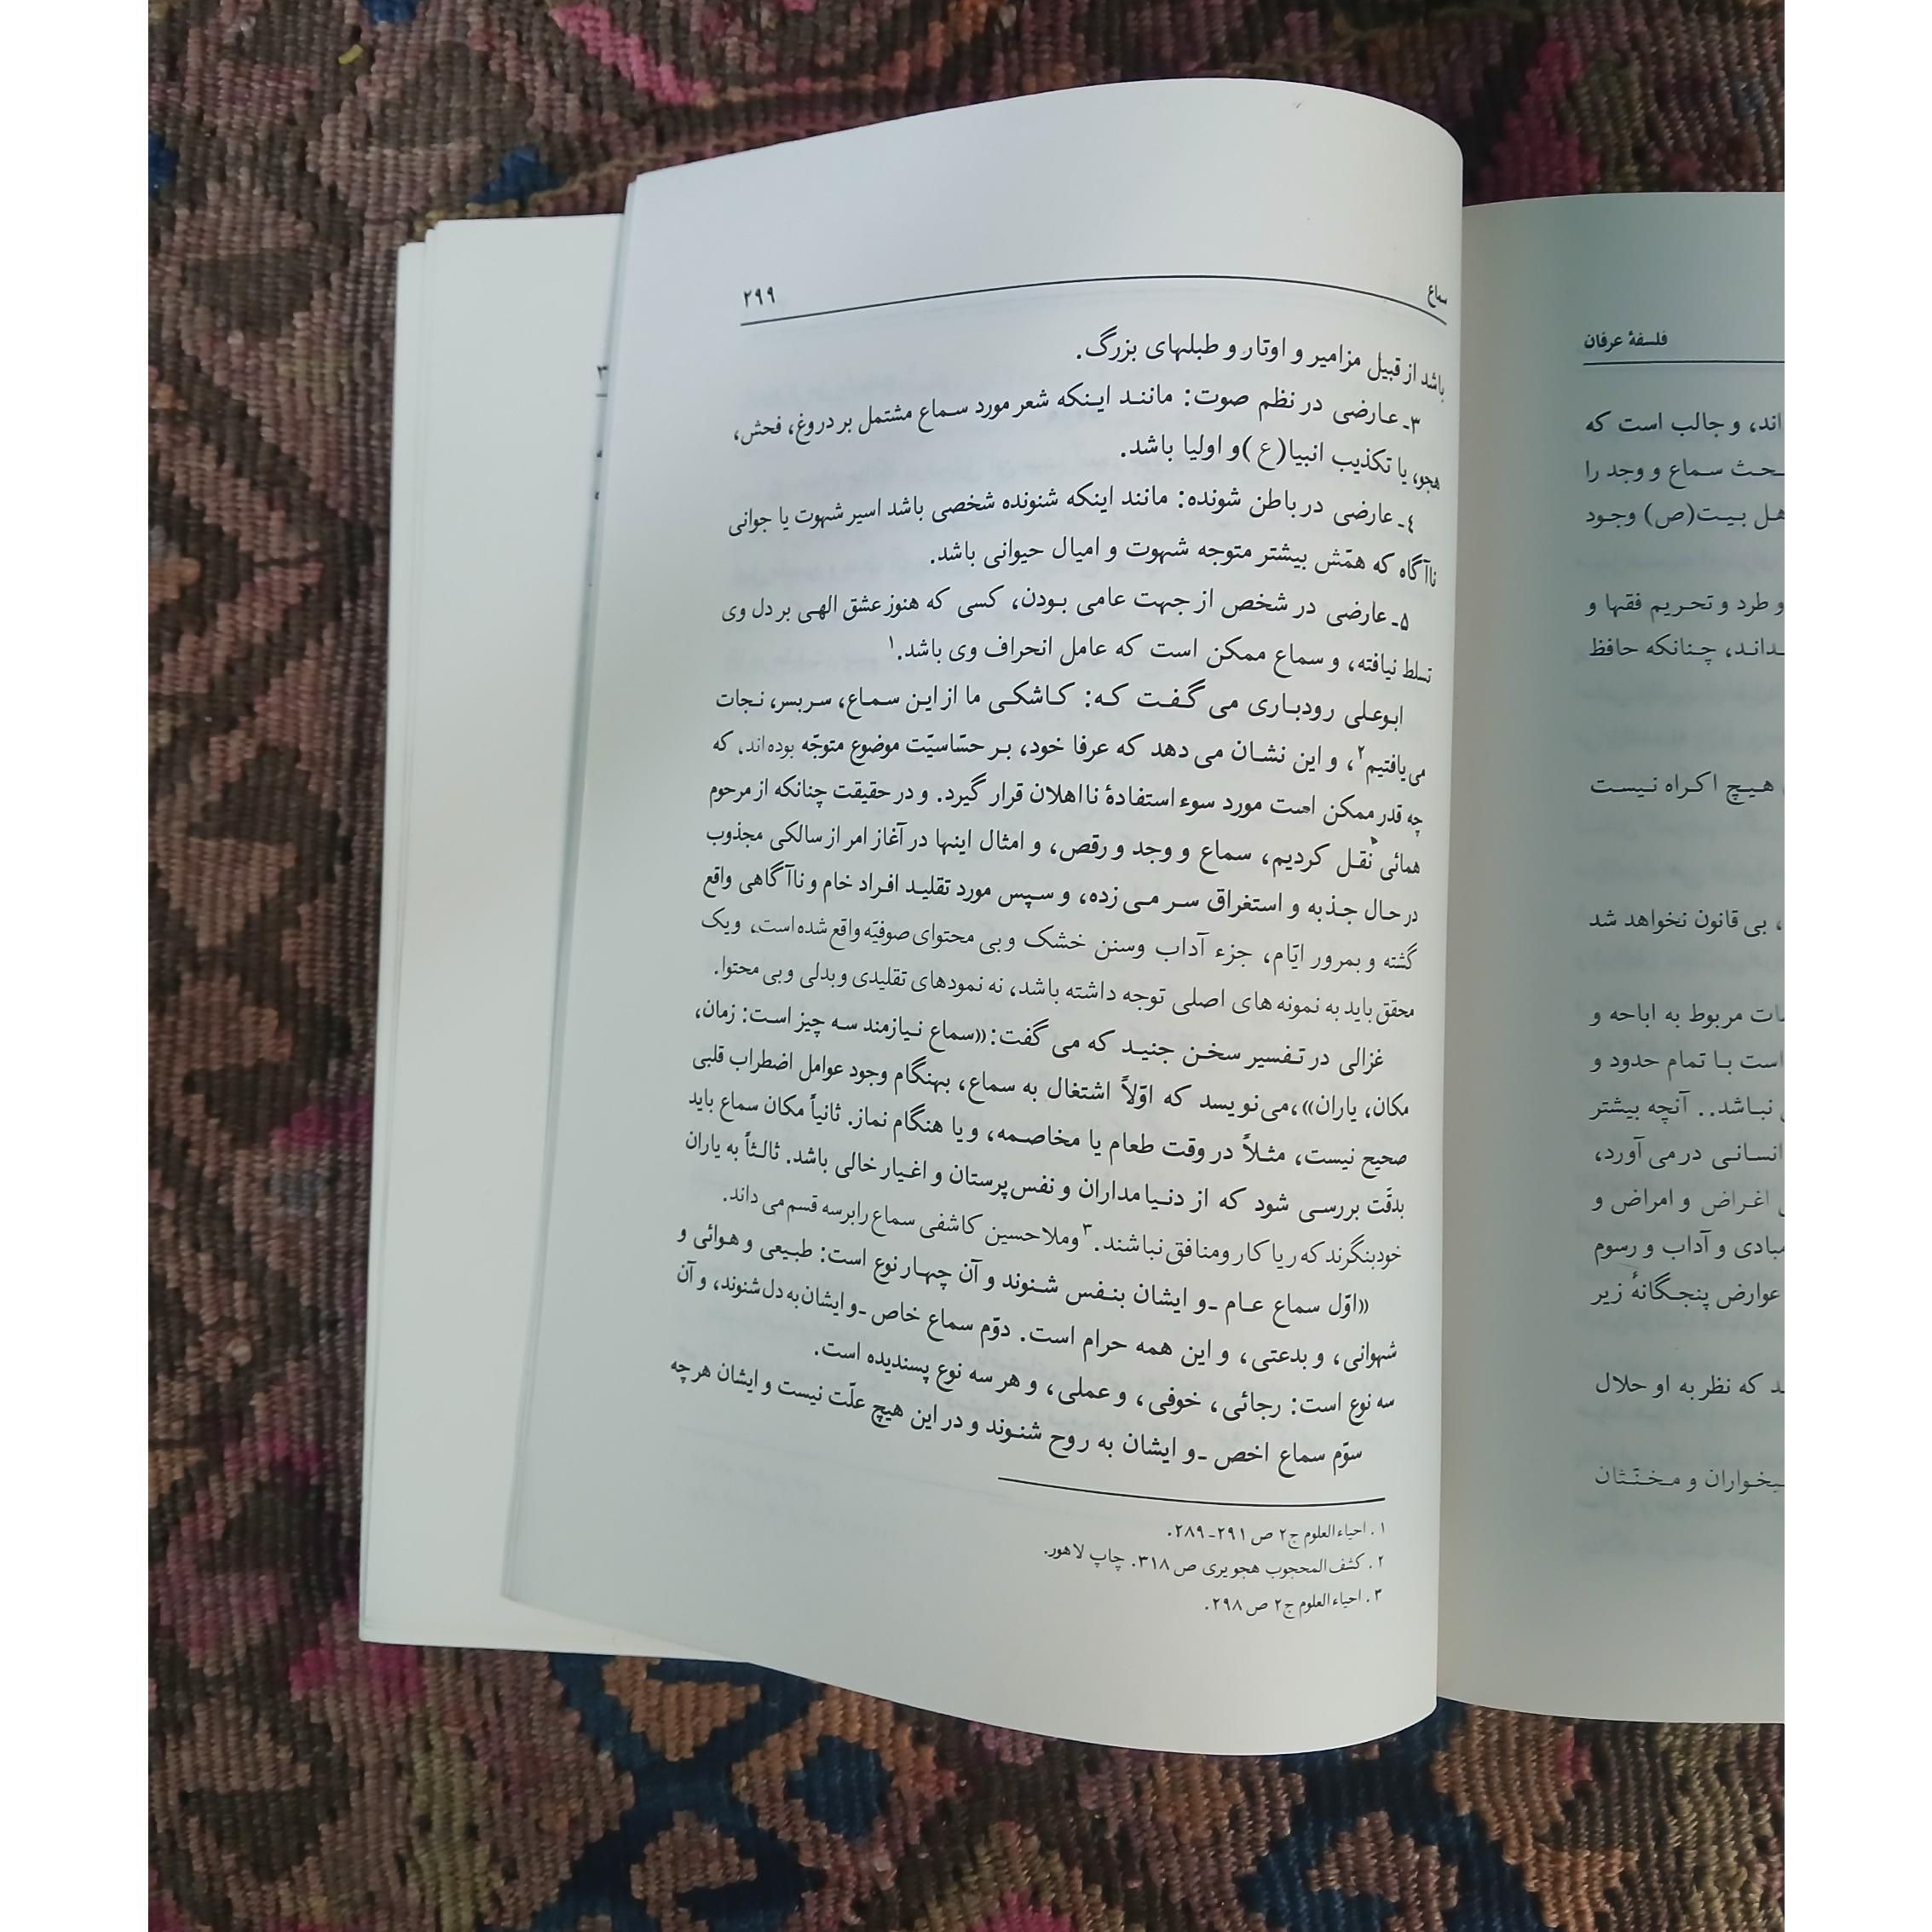 فلسفهٔ عرفان
اند، و جالب است که
بحث سماع و وجد را
هل بیت(ص) وجود
و طرد و تحریم فقها و
چنانکه حافظ
هیچ اکراه نیست
، بی قانون نخواهد شد
مربوط به اباحه و
است با تمام حدود و
نباشد.. آنچه بیشتر
انسانی درمی آورد،
اغراض و امراض و
مبادی و آداب و رسوم
عوارض پنجگانهٔ زیر
که نظر به او حلال
و مخنّثان
سماع
۲۹۹
باشد از قبیل مزامیر و اوتار و طبلهای بزرگ.
۳ـ عارضی در نظم صوت: مانند اینکه شعر مورد سماع مشتمل بر دروغ، فحش،
هجو، یا تکذیب انبیا(ع) و اولیا باشد.
٤ـ عارضی در باطن شونده: مانند اینکه شنونده شخصی باشد اسیر شهوت یا جوانی
ناآگاه که همّش بیشتر متوجه شهوت و امیال حیوانی باشد.
۵ـ عارضی در شخص از جهت عامی بودن، کسی که هنوز عشق الهی بر دل وی
تسلط نیافته، و سماع ممکن است که عامل انحراف وی باشد.۱
ابوعلی رودباری می گفت که: کاشکی ما از این سماع، سربسر، نجات
می یافتیم۲، و این نشان می دهد که عرفا خود، بر حسّاسیّت موضوع متوجّه بوده اند، که
چه قدر ممکن است مورد سوء استفادهٔ نااهلان قرار گیرد. و در حقیقت چنانکه از مرحوم
همائی نقل کردیم، سماع و وجد و رقص، و امثال اینها در آغاز امر از سالکی مجذوب
در حال جذبه و استغراق سر می زده، و سپس مورد تقلید افراد خام و ناآگاهی واقع
گشته و بمرور ایّام، جزء آداب وسنن خشک و بی محتوای صوفیّه واقع شده است، و یک
محقق باید به نمونه های اصلی توجه داشته باشد، نه نمودهای تقلیدی و بدلی و بی محتوا.
غزالی در تفسیر سخن جنید که می گفت: «سماع نیازمند سه چیز است: زمان،
مکان، یاران»، می نویسد که اوّلاً اشتغال به سماع، بهنگام وجود عوامل اضطراب قلبی
صحیح نیست، مثلاً در وقت طعام یا مخاصمه، و یا هنگام نماز. ثانیاً مکان سماع باید
بدقّت بررسی شود که از دنیامداران و نفس پرستان و اغیار خالی باشد. ثالثاً به یاران
خود بنگرند که ریا کار و منافق نباشند.۳ وملا حسین کاشفی سماع را بر سه قسم می داند.
«اوّل سماع عام ـ و ایشان بنفس شنوند و آن چهار نوع است: طبیعی و هوائی و
شهوانی، و بدعتی، و این همه حرام است. دوّم سماع خاص ـ و ایشان به دل شنوند، و آن
سه نوع است: رجائی، خوفی، و عملی، و هر سه نوع پسندیده است.
سوّم سماع اخص ـ و ایشان به روح شنوند و در این هیچ علّت نیست و ایشان هر چه
۱. احیاء العلوم ج۲ ص ۲۹۱ـ۲۸۹.
۲. کشف المحجوب هجویری ص ۳۱۸. چاپ لاهور.
۳. احیاء العلوم ج۲ ص ۲۹۸.